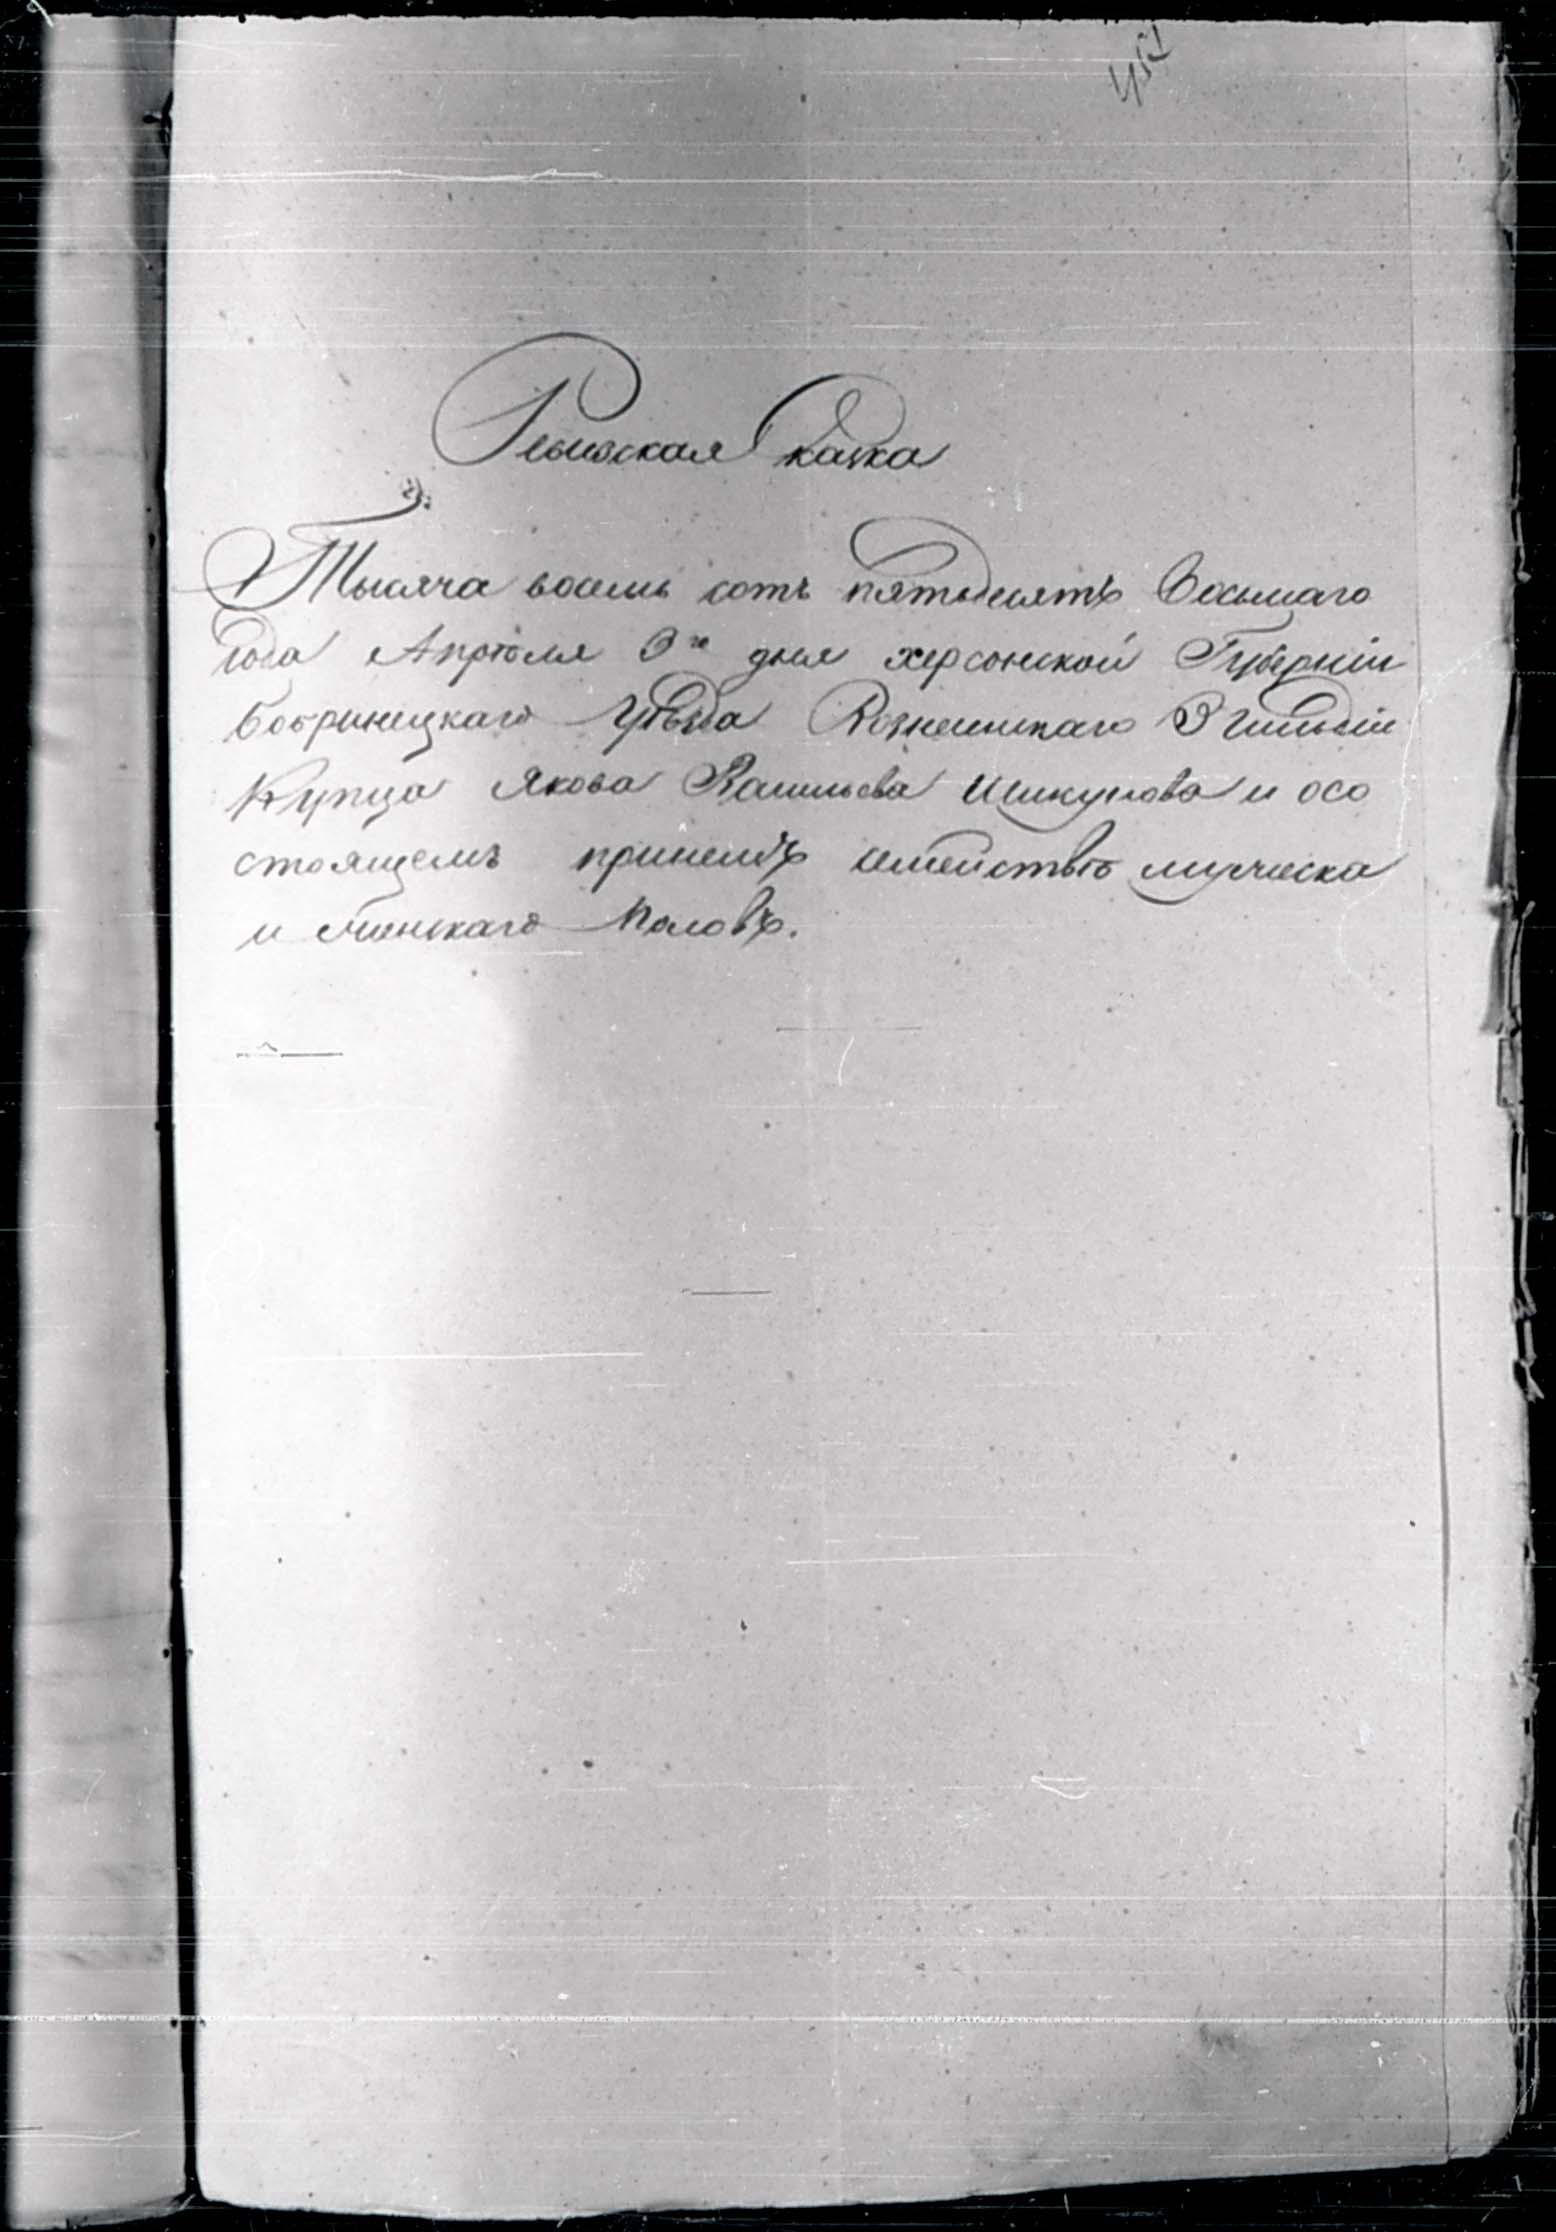 Ревизская Сказка
Тысяча восемь сотъ пятьдесятъ Восьмаго
года Апреля 3го дня херсонской Губерніи
бобринецкаго Уѣзда Вознесенскаго 3 Гильдіи
Купца Якова Васильева Шикунова и осо
стоящемъ принемъ семействѣ мужеска
и женскаго Половъ.